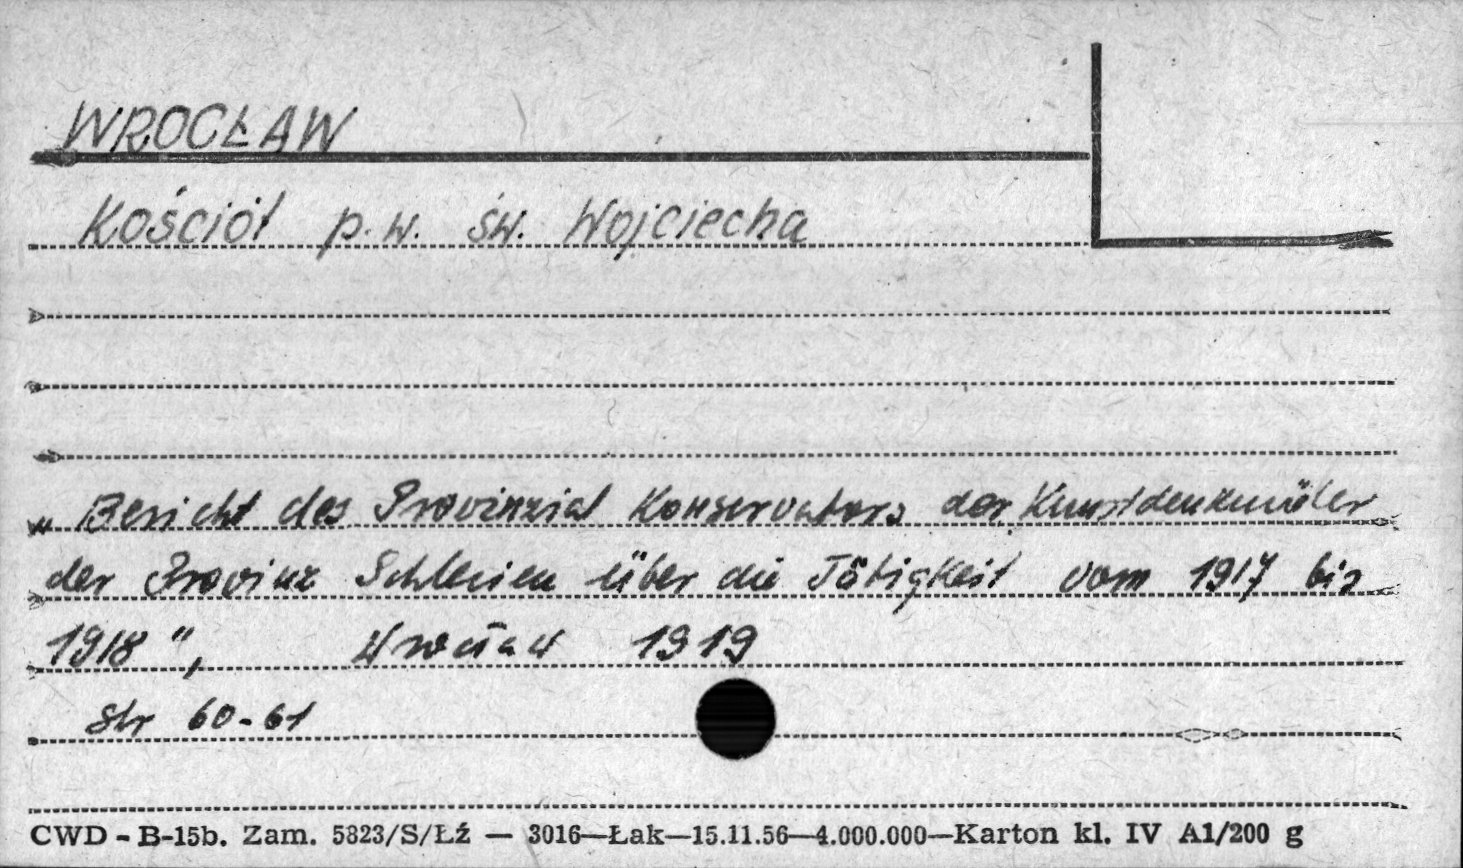 WROCŁAW
Kościół p.w. św. Wojciecha
„Bericht des Provinzial Konservators der Kunstdenkmäler
der Provinz Schlesien über die Tätigkeit vom 1917 bis
1918", Wrocław 1919
str 60-61
CWD - B-15b. Zam. 5823/S/Łź — 3016—Łak—15.11.56—4.000.000—Karton kl. IV A1/200 g